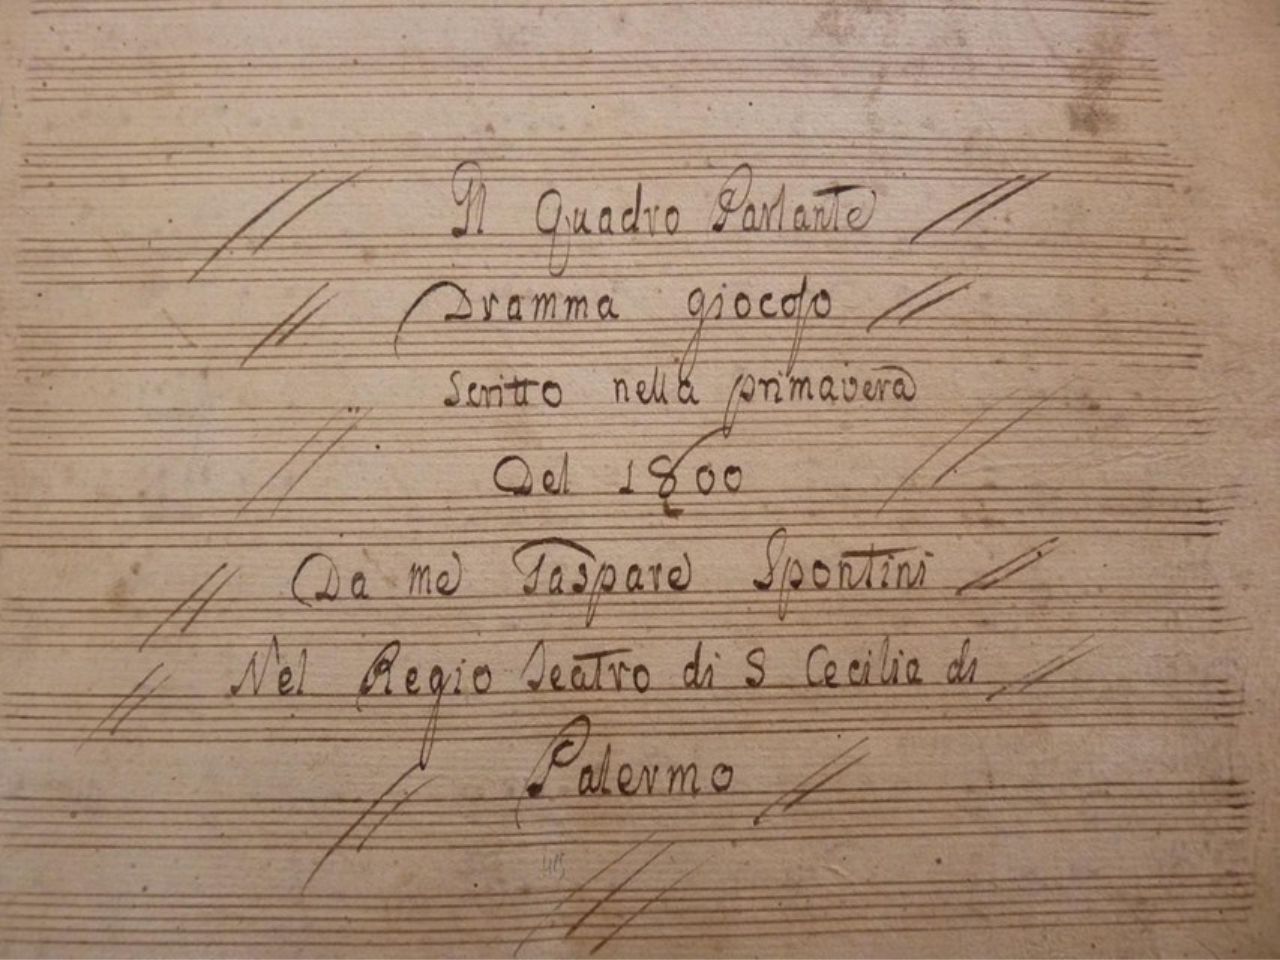 Il Quadro Parlante
Dramma giocoso
Scritto nella primavera
Del 1800
Da me Gaspare Spontini
Nel Regio Teatro di S Cecilia di
Palermo